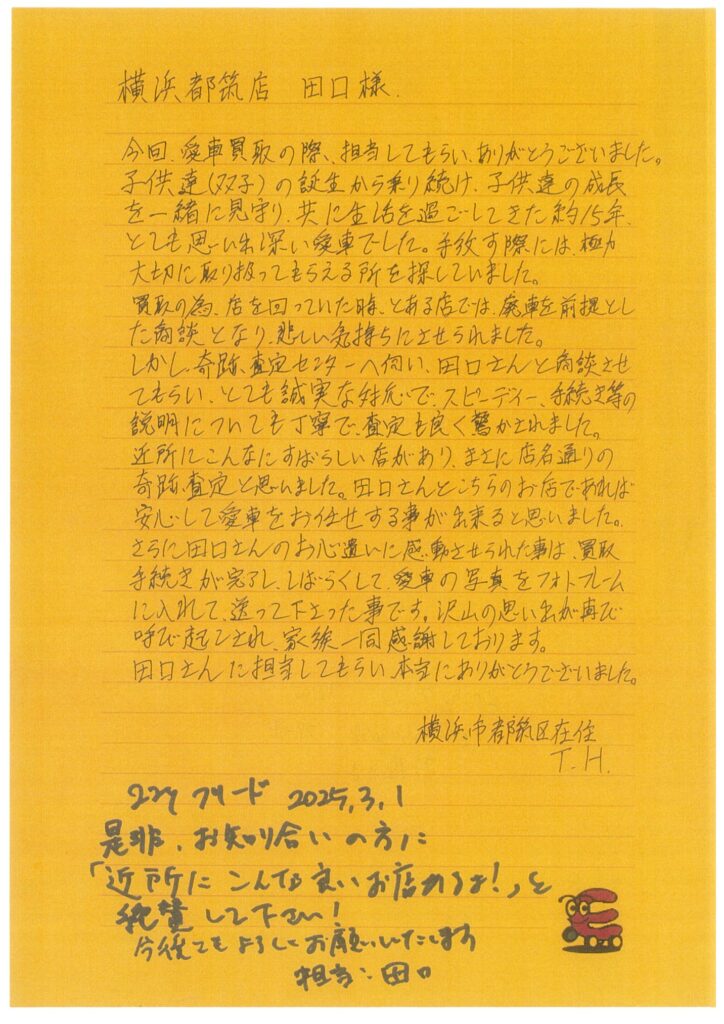 横浜都筑店 田口様.
今回、愛車買取の際、担当してもらい、ありがとうございました。
子供達(双子)の誕生から乗り続け、子供達の成長
を一緒に見守り、共に生活を過ごしてきた約15年、
とても思い出深い愛車でした。手放す際には、極力
大切に取り扱ってもらえる所を探していました。
買取の為、店を回っていた時、とある店では、廃車を前提とし
た商談となり、悲しい気持ちにさせられました。
しかし、奇跡の査定センターへ伺い、田口さんと商談させ
てもらい、とても誠実な対応で、スピーディー、手続き等の
説明についても丁寧で、査定も良く驚かされました。
近所にこんなにすばらしい店があり、まさに店名通りの
奇跡の査定と思いました。田口さんとこちらのお店であれば
安心して愛車をお任せする事が出来ると思いました。
さらに田口さんのお心遣いに感動させられた事は、買取
手続きが完了し、しばらくして、愛車の写真をフォトフレーム
に入れて、送って下さった事です。沢山の思い出が再び
呼び起こされ、家族一同感謝しております。
田口さんに担当してもらい、本当にありがとうございました。
横浜市都筑区在住
T.H.
フリード 2025.3.1
是非、お知り合いの方に
「近所にこんな良いお店あるよ!」と
絶賛して下さい!
今後ともよろしくお願いいたします
担当:田口